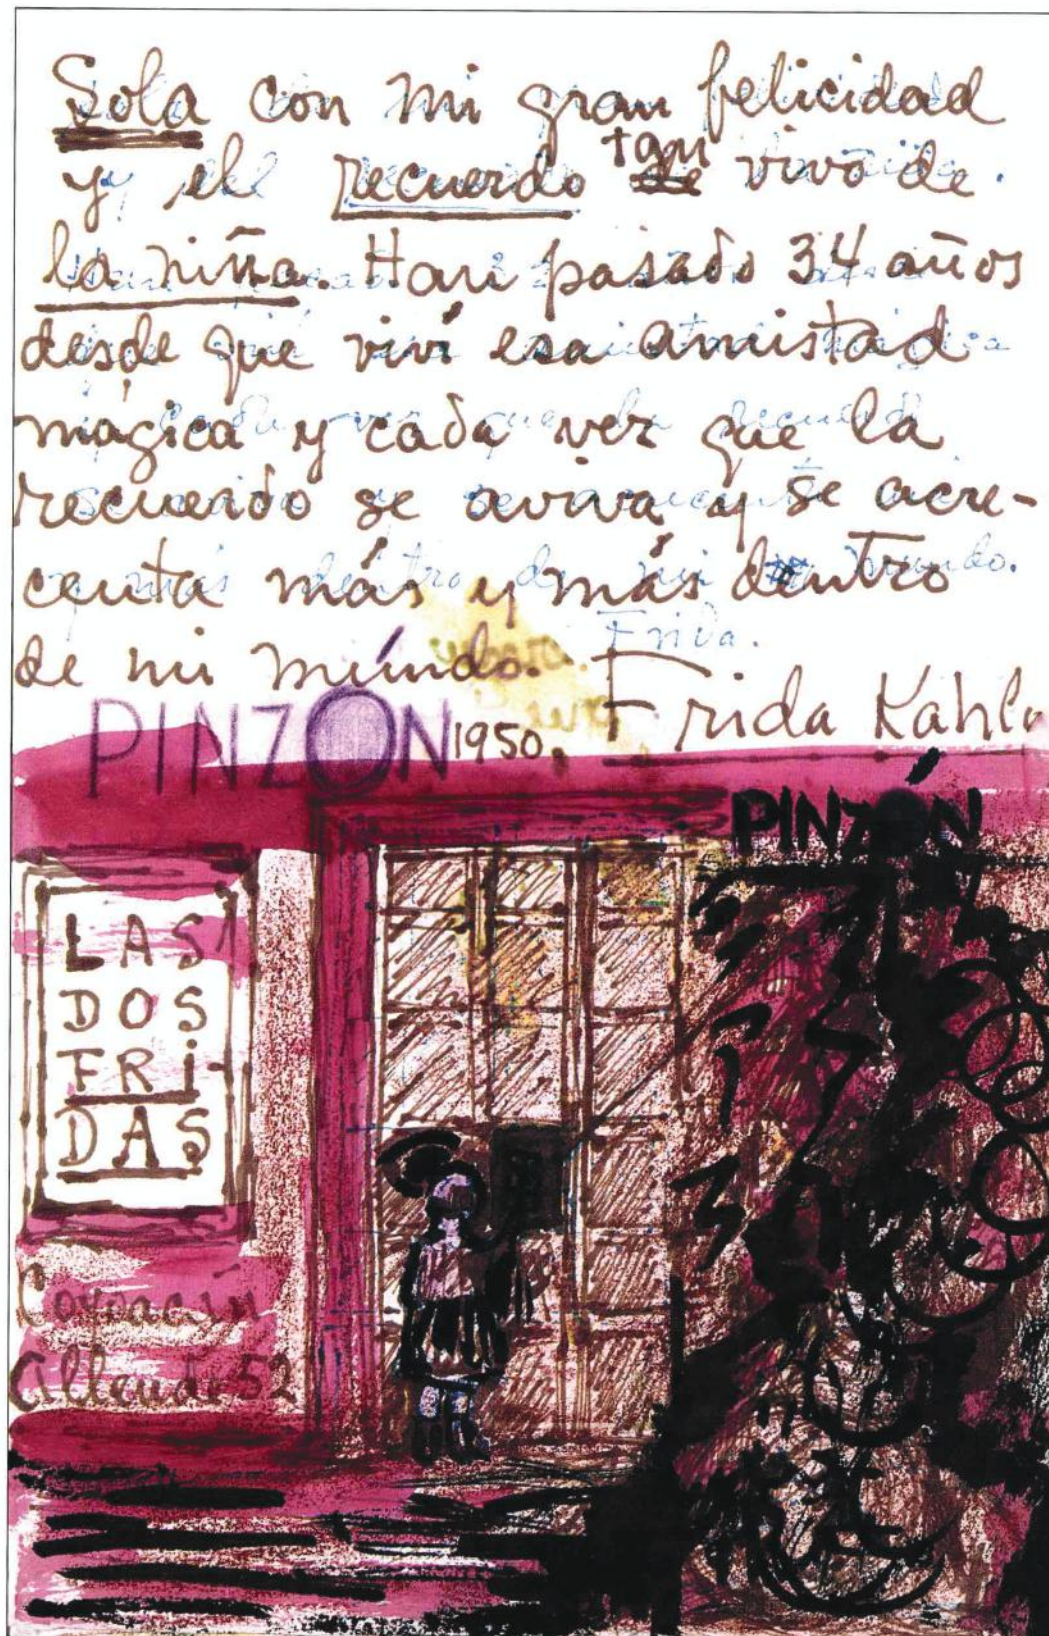 Sola con mi gran felicidad
y el recuerdo tan vivo de
la niña. Han pasado 34 años
desde que viví esa amistad
mágica y cada vez que la
recuerdo se aviva y se acre-
centa más y más dentro
de mi mundo.
Frida.
PINZÓN 1950. Frida Kahlo
PINZÓN
LAS
DOS
FRI-
DAS
Coyoacán
Allende 52